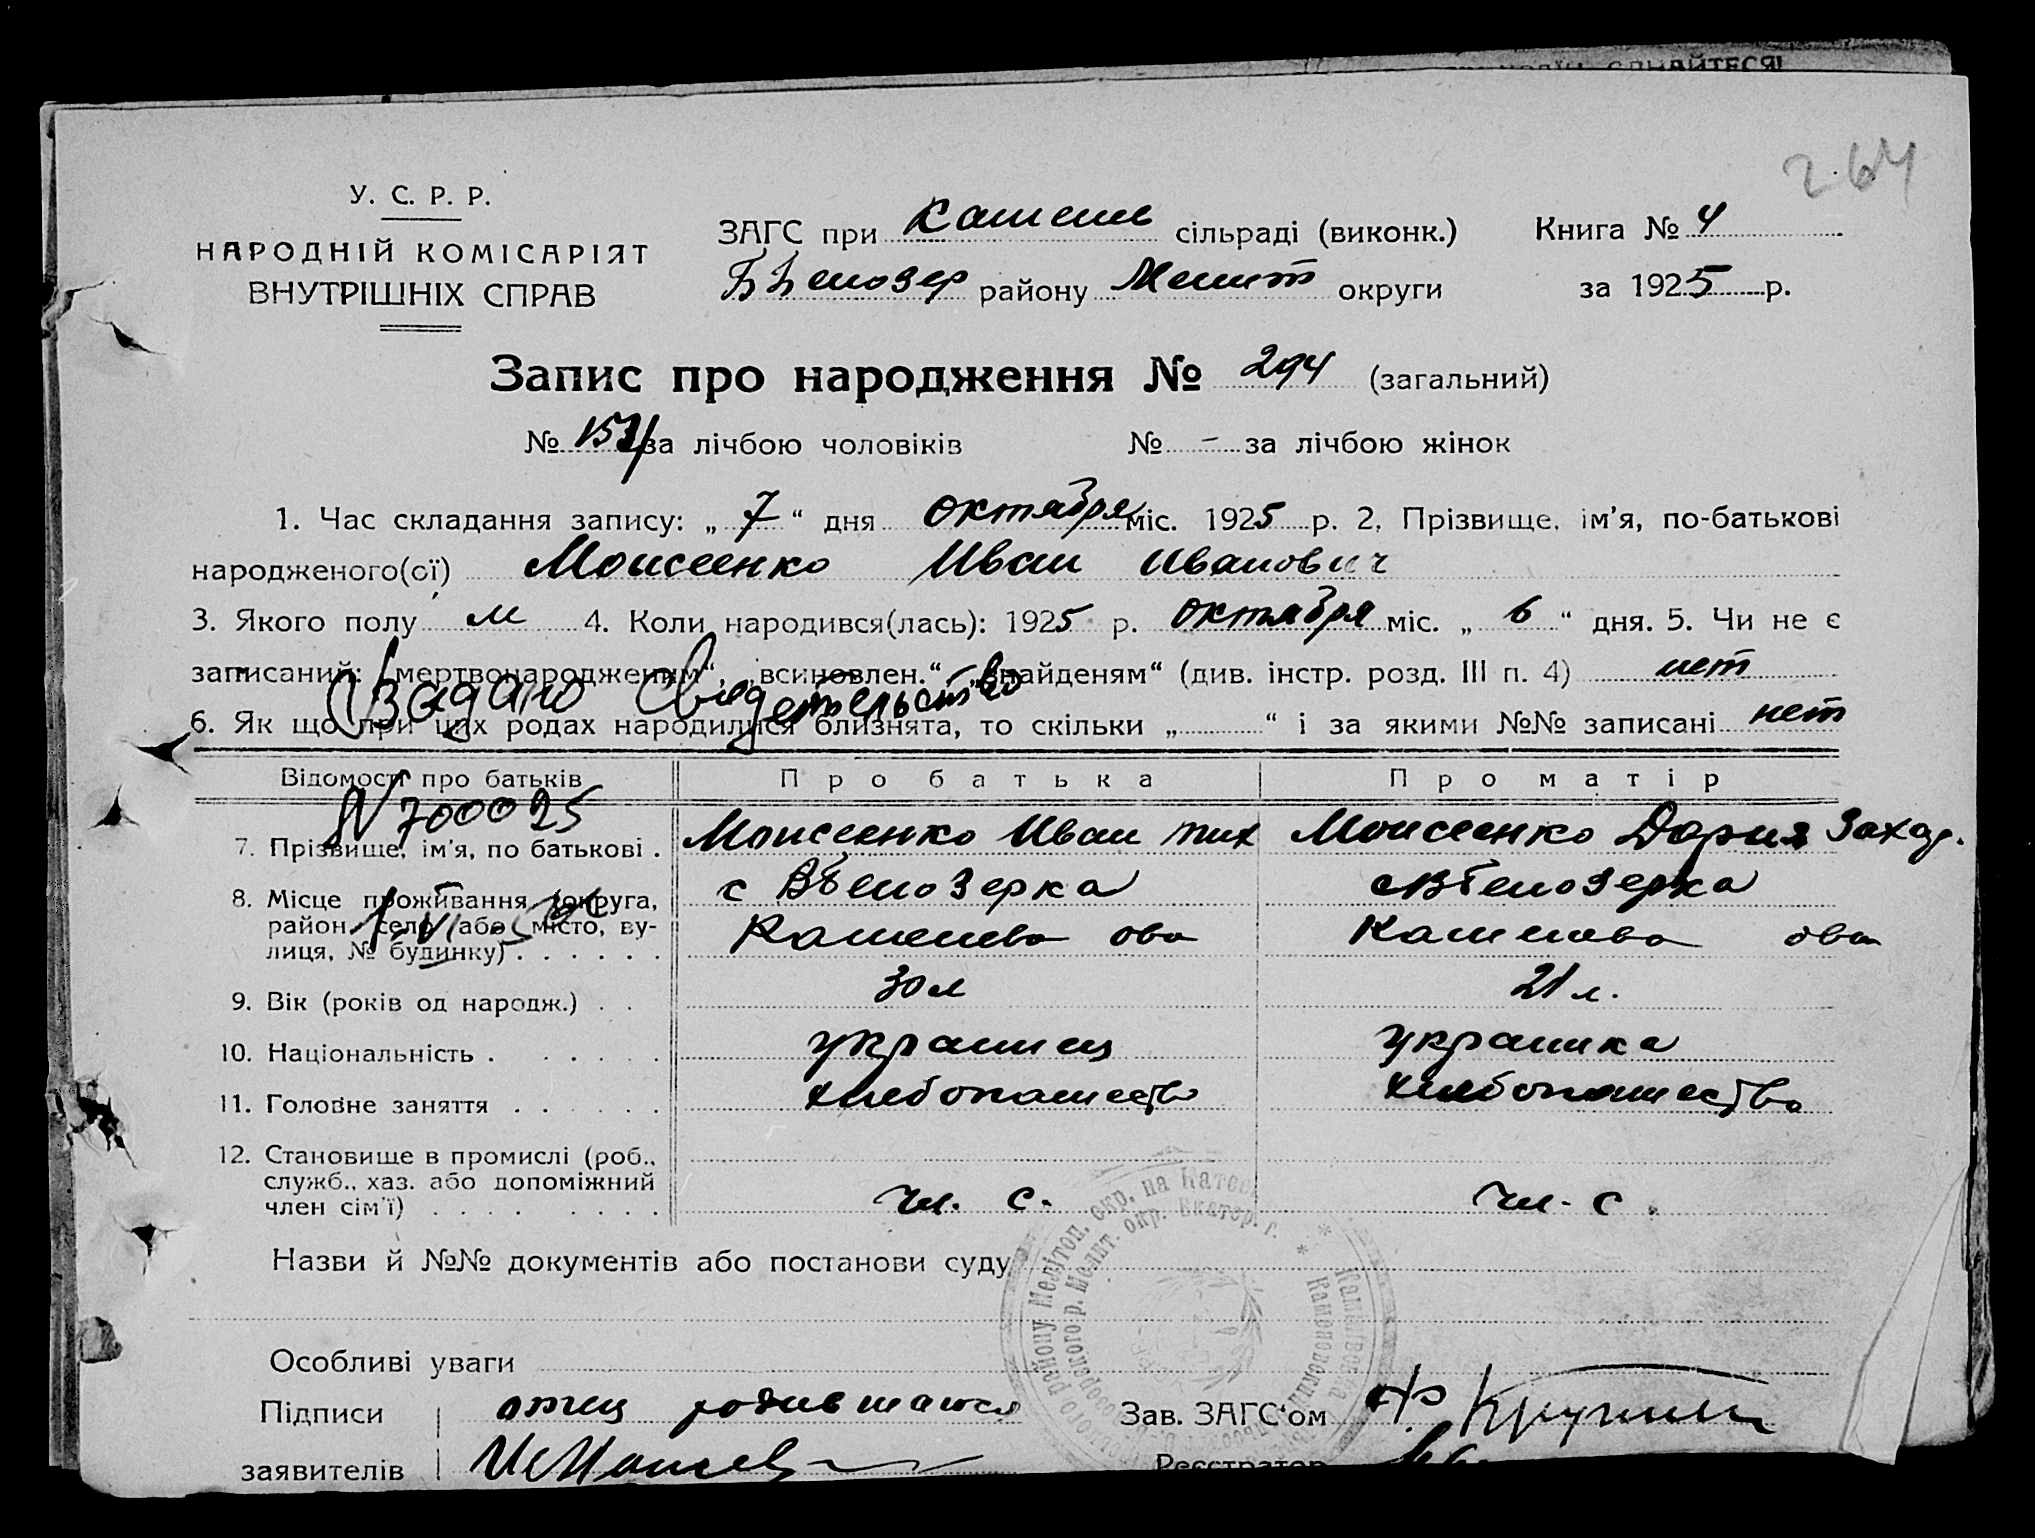 ЄДНАЙТЕСЯ!
264
У. С. Р. Р.
НАРОДНІЙ КОМІСАРІЯТ
ВНУТРІШНІХ СПРАВ
ЗАГС при сільраді (виконк.) Книга № 4
району Мелит округи за 1925 р.
Запис про народження № 294 (загальний)
№ за лічбою чоловіків № - за лічбою жінок
1. Час складання запису: „ 7 “ дня октября міс. 1925 р. 2. Прізвище, ім’я, по-батькові
народженого(ої) Моисеенко Иван Иванович
3. Якого полу м 4. Коли народився(лась): 1925 р. октября міс. „ 6 “ дня. 5. Чи не є
записаний: „мертвонародженим“, „всиновлен.“ „знайденям“ (див. інстр. розд. III п. 4) нет
Свидетельство
6. Як що при цих родах народилися близнята, то скільки „ “ і за якими №№ записані нет
Відомості про батьків Про батька Про матір
N 700025
7. Прізвище, ім’я, по батькові . Моисеенко Иван тих Моисеенко Дария Захар.
8. Місце проживання (округа, район, село або місто, вулиця, № будинку) . . . . . .
9. Вік (років од народж.) . . 30 л 21 л.
10. Національність . . . . . . украинец украинка
11. Головне заняття . . . . . . хлебопашество хлебопашество
12. Становище в промислі (роб.,
служб., хаз. або допоміжний
член сім’ї) . . . . . . . . чл. с. чл. с.
Назви й №№ документів або постанови суду
Особливі уваги
Підписи отец родившагося Зав. ЗАГС‘ом
заявителів Реєстратор